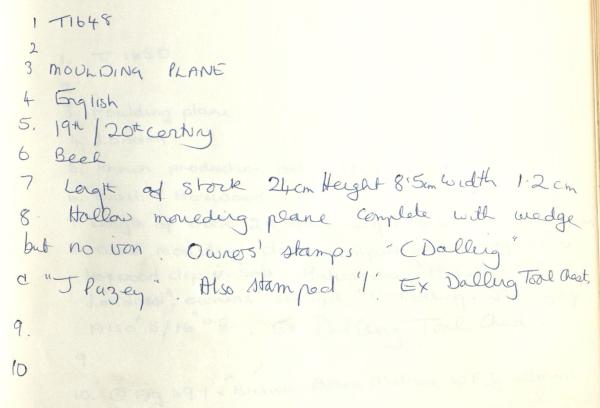 1 T1648
2
3 MOULDING PLANE
4 English
5. 19th/20th century
6 Beech
7 Length of stock 24cm Height 8.5cm Width 1.2cm
8. Hollow moulding plane complete with wedge
but no iron. Owners' stamps "C Dalling"
& "J Pazey". Also stamped '1'. Ex Dalling Tool Chest.
9.
10